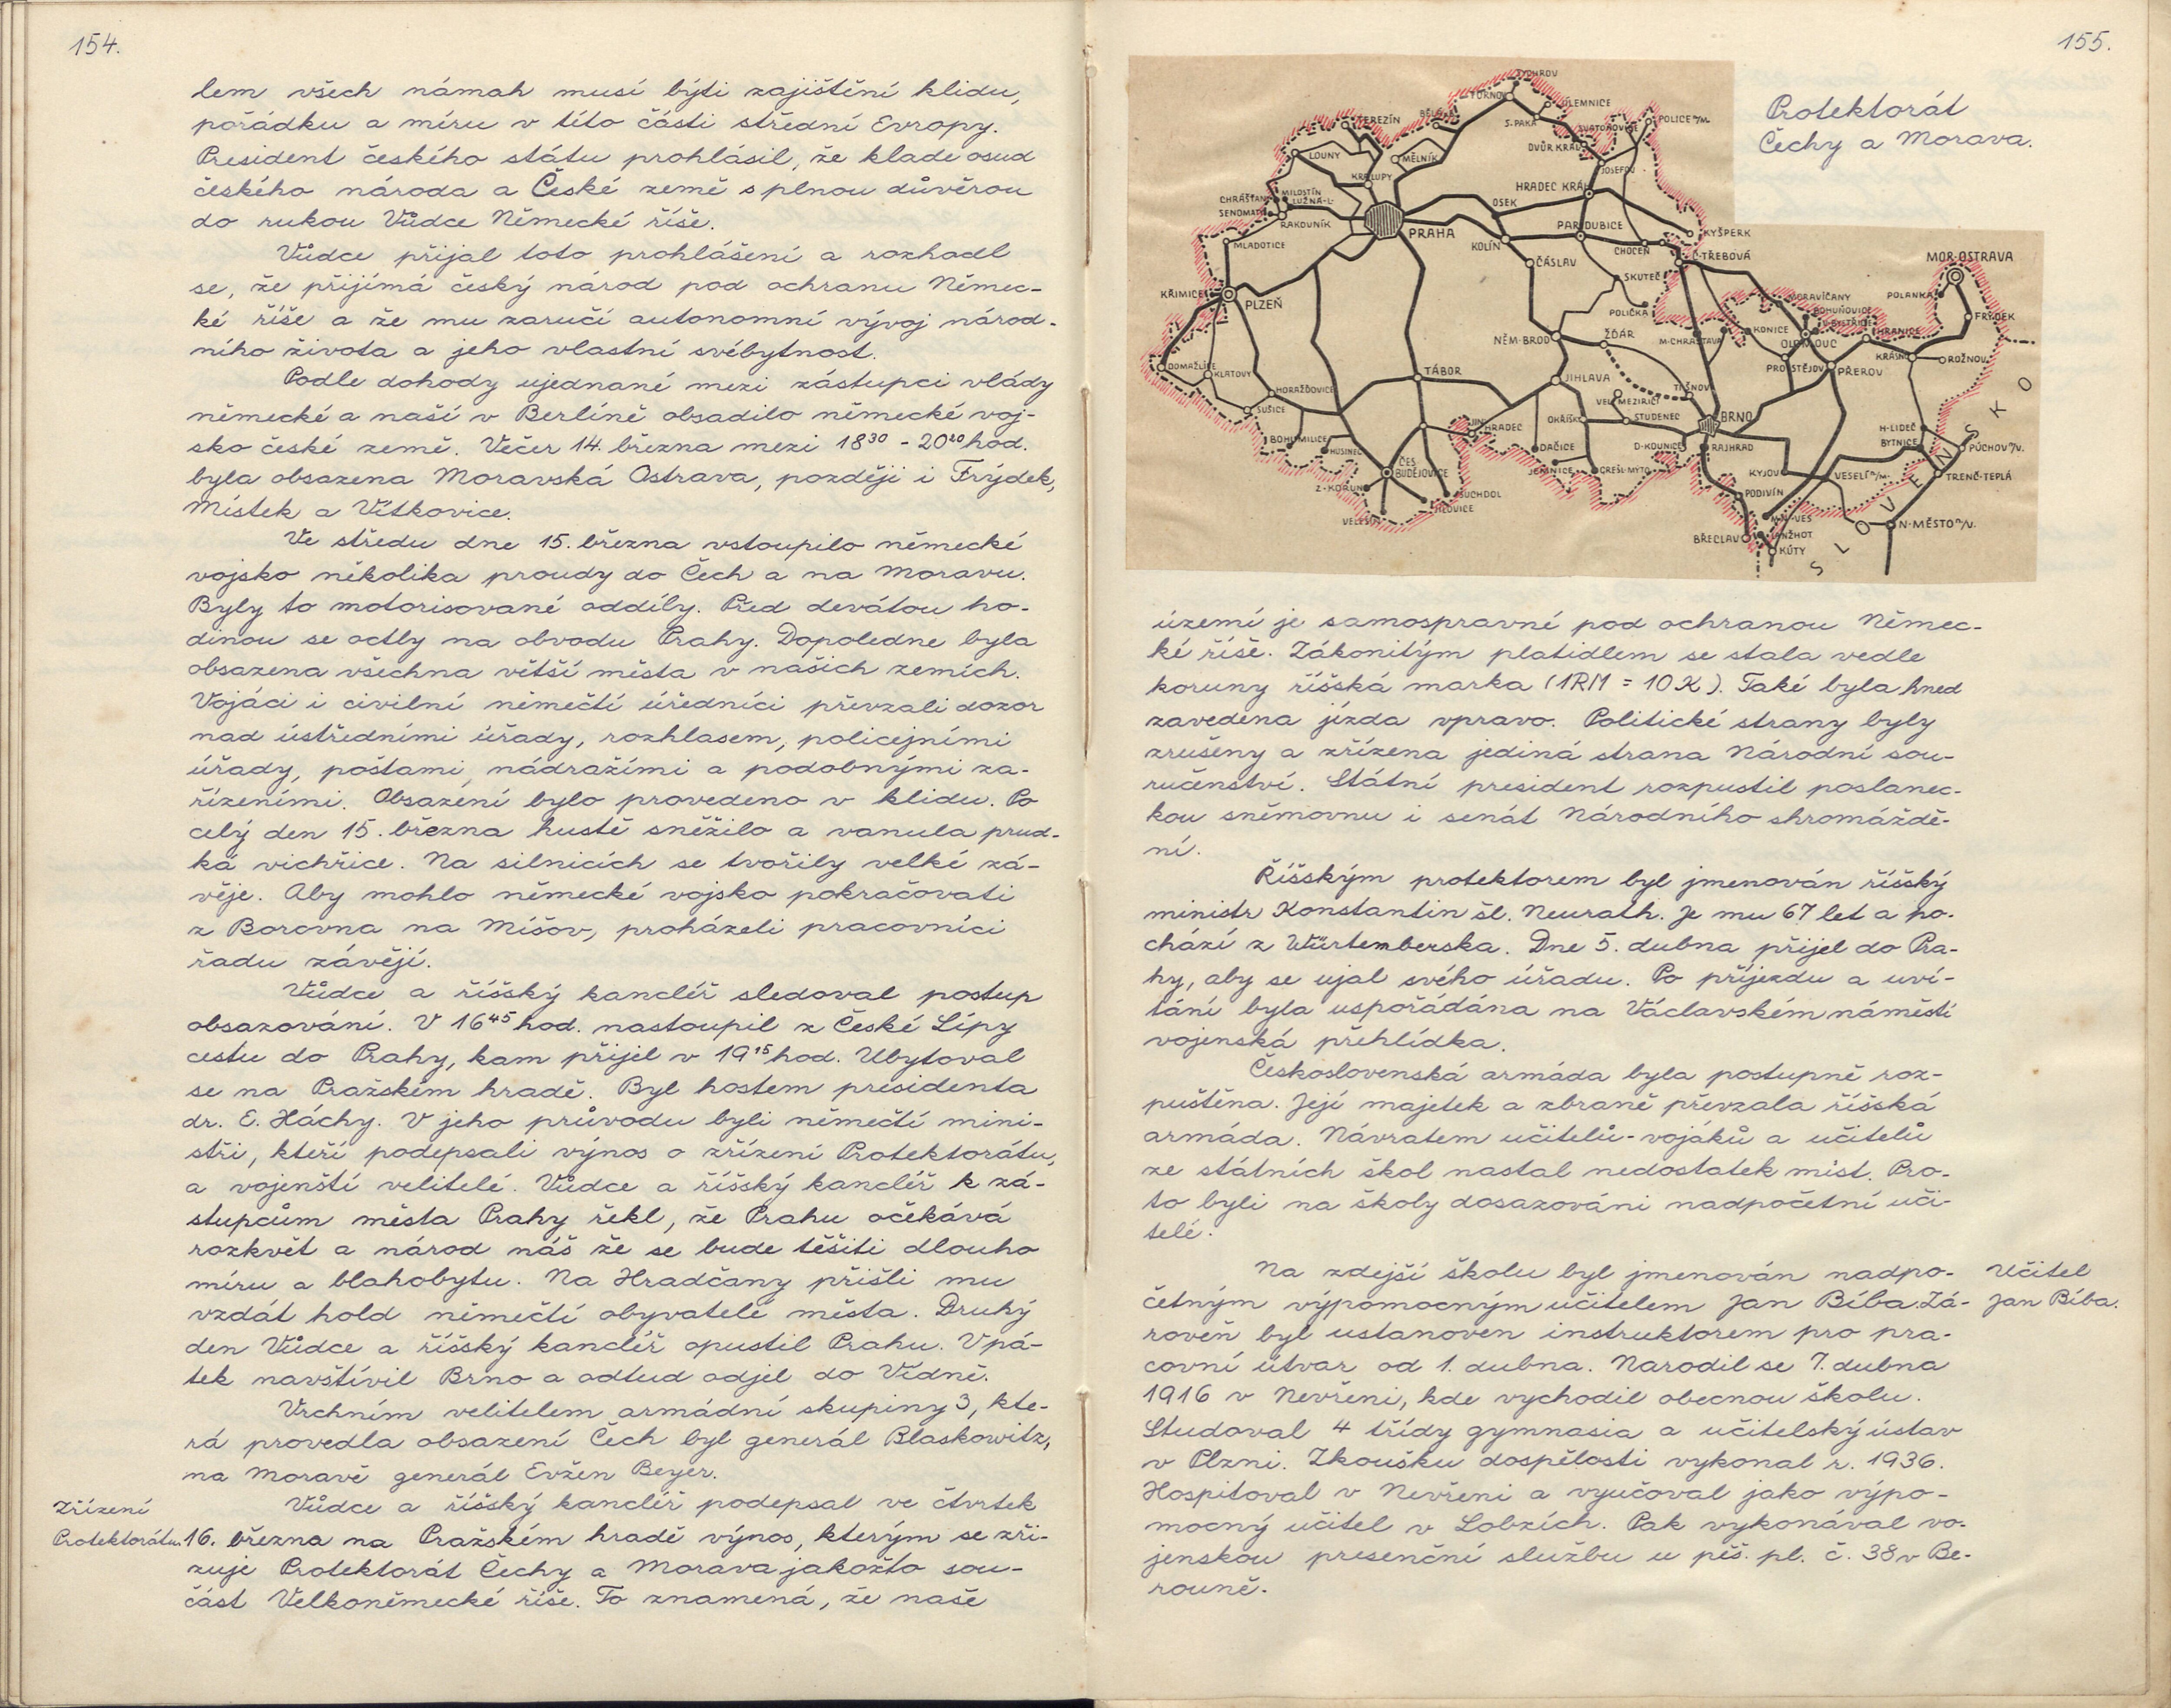 154.
lem všech námah musí býti zajištění klidu,
pořádku a míru v této části střední Evropy.
President českého státu prohlásil, že klade osud
českého národa a České země s plnou důvěrou
do rukou Vůdce Německé říše.
Vůdce přijal toto prohlášení a rozhodl
se, že přijímá český národ pod ochranu Němec-
ké říše a že mu zaručí autonomní vývoj národ-
ního života a jeho vlastní svébytnost.
Podle dohody ujednané mezi zástupci vlády
německé a naší v Berlíně obsadilo německé voj-
sko české země. Večer 14. března mezi 18³⁰ - 20²⁰ hod.
byla obsazena Moravská Ostrava, později i Frýdek,
Místek a Vítkovice.
Ve středu dne 15. března vstoupilo německé
vojsko několika proudy do Čech a na Moravu.
Byly to motorisované oddíly. Před devátou ho-
dinou se octly na obvodu Prahy. Dopoledne byla
obsazena všechna větší města v našich zemích.
Vojáci i civilní němečtí úředníci převzali dozor
nad ústředními úřady, rozhlasem, policejními
úřady, poštami, nádražími a podobnými za-
řízeními. Obsazení bylo provedeno v klidu. Po
celý den 15. března hustě sněžilo a vanula prud-
ká vichřice. Na silnicích se tvořily velké zá-
věje. Aby mohlo německé vojsko pokračovati
z Borovna na Míšov, proházeli pracovníci
řadu závějí.
Vůdce a říšský kancléř sledoval postup
obsazování. V 16⁴⁵ hod. nastoupil z České Lípy
cestu do Prahy, kam přijel v 19¹⁵ hod. Ubytoval
se na Pražském hradě. Byl hostem presidenta
dr. E. Háchy. V jeho průvodu byli němečtí mini-
stři, kteří podepsali výnos o zřízení Protektorátu,
a vojenští velitelé. Vůdce a říšský kancléř k zá-
stupcům města Prahy řekl, že Prahu očekává
rozkvět a národ náš že se bude těšiti dlouho
míru a blahobytu. Na Hradčany přišli mu
vzdát hold němečtí obyvatelé města. Druhý
den Vůdce a říšský kancléř opustil Prahu. V pá-
tek navštívil Brno a odtud odjel do Vídně.
Vrchním velitelem armádní skupiny 3, kte-
rá provedla obsazení Čech byl generál Blaskowitz,
na Moravě generál Evžen Beyer.
Zřízení
Protektorátu.
Vůdce a říšský kancléř podepsal ve čtvrtek
16. března na Pražském hradě výnos, kterým se zři-
zuje Protektorát Čechy a Morava jakožto sou-
část Velkoněmecké říše. To znamená, že naše
155.
Protektorát
Čechy a Morava.
TURNOV
OLEMNICE
S.PAKA
POLICE n/M.
TEREZÍN
LOUNY
MĚLNÍK
DVŮR KRÁL
JOSEFOV
KRALUPY
HRADEC KRÁL
CHRÁŠŤANY
MILOSTÍN
LUŽNÁ-L.
SENOMATY
RAKOVNÍK
OSEK
PRAHA
KOLÍN
PARDUBICE
CHOCEŇ
KYŠPERK
Č.TŘEBOVÁ
MLADOTICE
ČÁSLAV
SKUTEČ
MOR·OSTRAVA
POLANKA
KŘIMICE
PLZEŇ
POLIČKA
MORAVIČANY
BOHUŇOVICE
FRÝDEK
NĚM·BROD
ŽĎÁR
M·CHRASTAVA
KONICE
OLOMOUC
HRANICE
KRÁSNO
ROŽNOV
DOMAŽLICE
KLATOVY
HORAŽĎOVICE
SUŠICE
TÁBOR
JIHLAVA
PROSTĚJOV
PŘEROV
TIŠNOV
VEL·MEZIŘÍČÍ
OKŘÍŠKY
STUDENEC
BRNO
BOHUMILICE
HUSINEC
J·HRADEC
DAČICE
D·KOUNICE
RAJHRAD
H·LIDEČ
BYLNICE
PÚCHOV n/V.
ČES.
BUDĚJOVICE
JEMNICE
GREŠL·MÝTO
KYJOV
VESELÍ n/M.
TRENČ·TEPLÁ
Z·KORUNA
SUCHDOL
PODIVÍN
VELEŠÍN
N·MĚSTO n/V.
BŘECLAV
LANŽHOT
KÚTY
SLOVENSKO
území je samosprávné pod ochranou Němec-
ké říše. Zákonitým platidlem se stala vedle
koruny říšská marka (1RM = 10 K). Také byla hned
zavedena jízda vpravo. Politické strany byly
zrušeny a zřízena jediná strana Národní sou-
ručenství. Státní president rozpustil poslanec-
kou sněmovnu i senát Národního shromáždě-
ní.
Říšským protektorem byl jmenován říšský
ministr Konstantin šl. Neurath. Je mu 67 let a po-
chází z Würtemberska. Dne 5. dubna přijel do Pra-
hy, aby se ujal svého úřadu. Po příjezdu a uví-
tání byla uspořádána na Václavském náměstí
vojenská přehlídka.
Československá armáda byla postupně roz-
puštěna. Její majetek a zbraně převzala říšská
armáda. Návratem učitelů-vojáků a učitelů
ze státních škol nastal nedostatek míst. Pro-
to byli na školy dosazováni nadpočetní uči-
telé.
Na zdejší školu byl jmenován nadpo-
četným výpomocným učitelem Jan Bíba. Zá-
roveň byl ustanoven instruktorem pro pra-
covní útvar od 1. dubna. Narodil se 7. dubna
1916 v Nevřeni, kde vychodil obecnou školu.
Studoval 4 třídy gymnasia a učitelský ústav
v Plzni. Zkoušku dospělosti vykonal r. 1936.
Hospitoval v Nevřeni a vyučoval jako výpo-
mocný učitel v Lobzích. Pak vykonával vo-
jenskou presenční službu u pěš. pl. č. 38 v Be-
rouně.
Učitel
Jan Bíba.